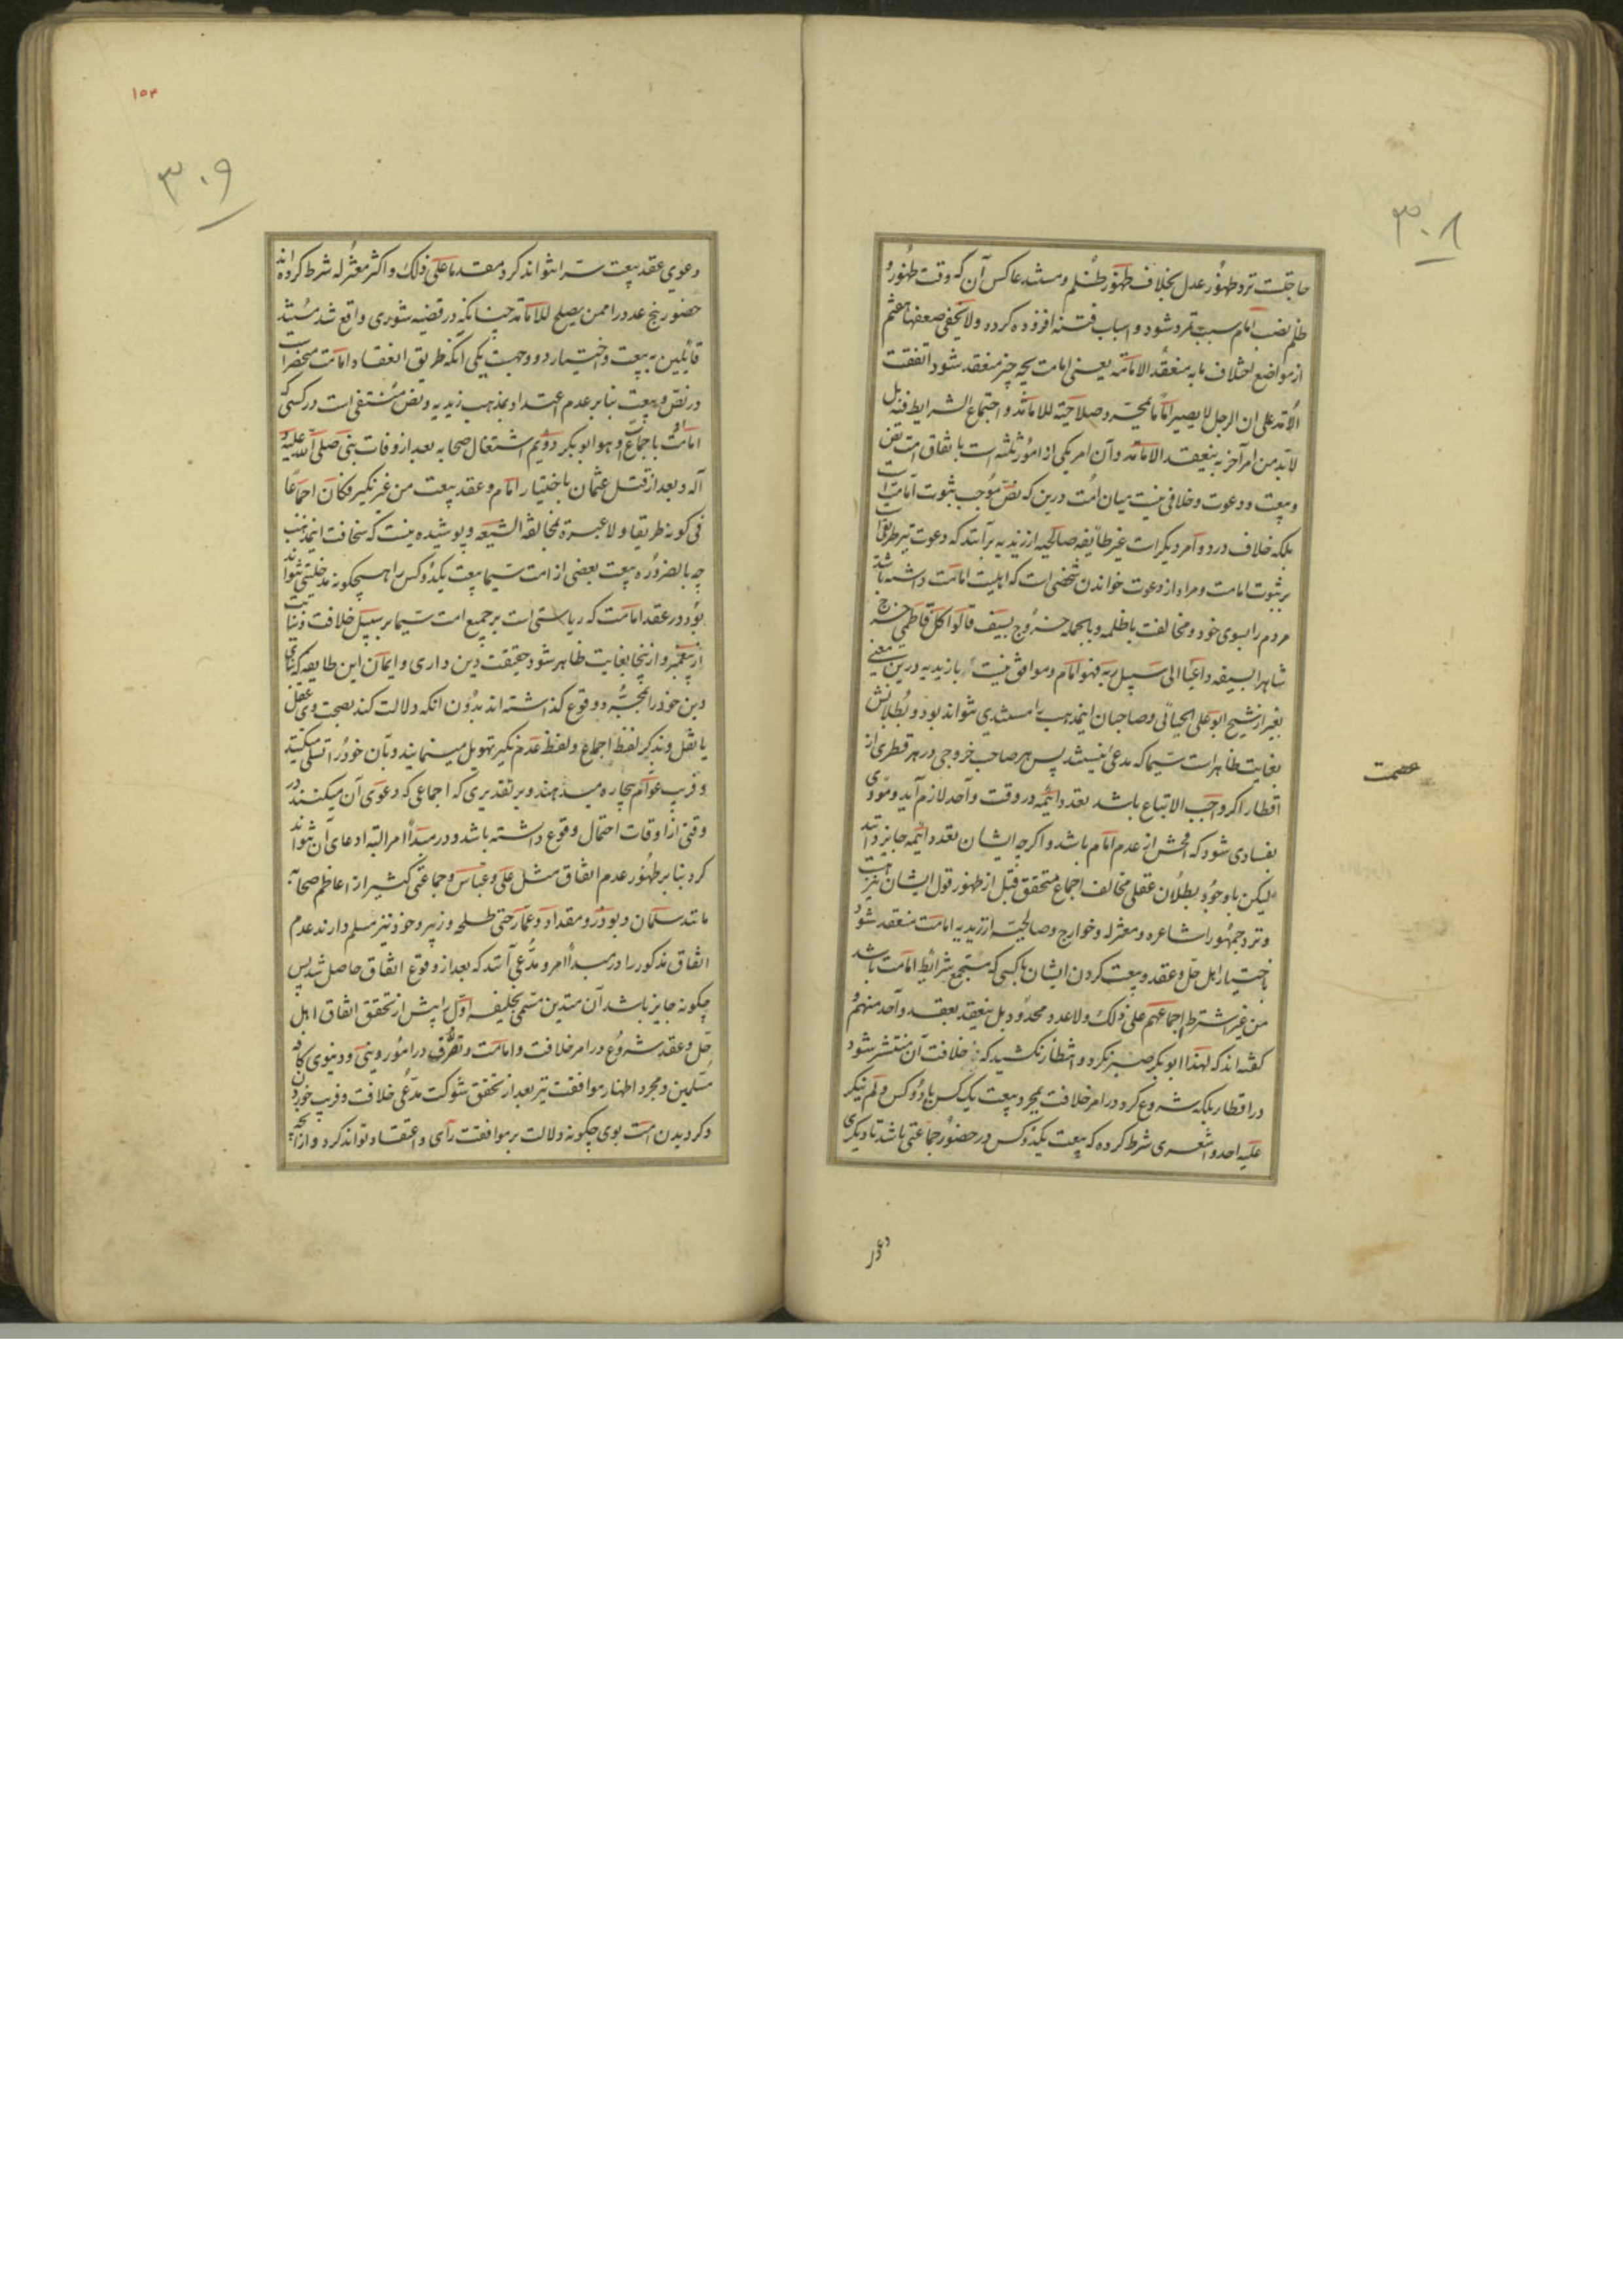 ٣٠٨
حاجتست نزد ظهور عدل بخلاف ظهور ظلم و مستند عاکس آن که وقت ظهور
ظلم نصب امام سبب تمرد شود و اسباب فتنه افزوده کردد ولا یخفی ضعفها هفتم
از مواضع اختلاف مابه منعقد الامامة یعنی امامت بچه چیز منعقد شود اتفقت
الامة علی ان الرجل لا یصیر اماما بمجرد صلاحیته للامامة و اجتماع الشرایط فیه بل
لابد من امر آخر به ینعقد الامامة و آن امر یکی از امور ثلثه است باتفاق امت نص
و بیعت و دعوت و خلافی نیست میان امت درین که نص موجب ثبوت امامت است
بلکه خلاف در دو امر دیگر است غیر طایفه صالحیه از زیدیه برآنند که دعوت نیز طریق است
بر ثبوت امامت و مراد از دعوت خواندن شخصی است که اهلیت امامت داشته باشد
مردم را بسوی خود و مخالفت با ظلمه و بالجمله خروج بسیف قالوا کل فاطمی خرج
شاهرا لسیفه داعیا الی سبیل ربه فهو امام و موافق نیست با زیدیه درین معنی
بغیر از شیخ ابو علی الجبائی و صاحبان این مذهب را مستندی نتواند بود و بطلانش
بغایت ظاهر است سیما که مدعی نیستند پس هر صاحب خروجی در هر قطری از
اقطار اکر واجب الاتباع باشد تعدد ائمه در وقت واحد لازم آید و مودی
بفسادی شود که افحش از عدم امام باشد و اکرچه ایشان تعدد ائمه جایز دانند
لیکن باوجود بطلان عقلی مخالف اجماع متحقق قبل از ظهور قول ایشان نیز هست
و نزد جمهور اشاعره و معتزله و خوارج و صالحیه از زیدیه امامت منعقد شود
باختیار اهل حل و عقد و بیعت کردن ایشان باکسی که مستجمع شرایط امامت باشد
من غیر اشتراط اجماعهم علی ذلک ولا عدد محدود بل ینعقد بعقد واحد منهم و
کفته اند که لهذا ابو بکر صبر نکرد و انتظار نکشید که خلافت آن منتشر شود
در اقطار بلکه شروع کرد در امر خلافت بمجرد بیعت یک کس یا دو کس ولم ینکر
علیه احد و اشعری شرط کرده که بیعت یکدو کس در حضور جماعتی باشد تا دیگری
عصمت
دعو
١٥٣
٣٠٩
دعوی عقد بیعت سرا نتواند کرد مقدما علی ذلک و اکثر معتزله شرط کرده اند
حضور پنج عدد را ممن یصلح للامامة چنانکه در قضیه شوری واقع شد مستند
قائلین به بیعت و اختیار دو وجهست یکی انکه طریق انعقاد امامت منحصر است
در نص و بیعت بنابر عدم اعتداد بمذهب زیدیه و نص منتفی است در کسی که
امامت او باجماع است و هو ابو بکر دویم اشتغال صحابه بعد از وفات نبی صلی الله علیه و
آله و بعد از قتل عثمان باختیار امام و عقد بیعت من غیر نکیر فکان اجماعا
فی کونه طریقا ولا عبرة لمخالفة الشیعه و پوشیده نیست که سخافت این مذهب
چه بالضروره بیعت بعضی از امت سیما بیعت یکدو کس را هیچگونه مدخلیتی نتواند
بود در عقد امامت که ریاستی است بر جمیع امت سیما بر سبیل خلافت و نیابت
از پیغمبر و از اینجا بغایت ظاهر شود حقیقت دین داری و ایمان این طایفه که بنای
دین خود را بمجرد وقوع کذاشته اند بدون انکه دلالت کند بصحت وی عقل
یا نقل و بذکر لفظ اجماع و لفظ عدم نکیر تهویل مینمایند و بآن خود را تسلی میکنند
و فریب عوام بیچاره میدهند و بر تقدیری که اجماعی که دعوی آن میکنند در
وقتی از اوقات احتمال وقوع داشته باشد و در مبدأ امر البته ادعای آن نتواند
کرد بنابر ظهور عدم اتفاق مثل علی و عباس و جماعتی کثیر از اعاظم صحابه
مانند سلمان و بوذر و مقداد و عمار حتی طلحه و زبیر و خود نیز مسلم دارند عدم
اتفاق مذکور را در مبدأ امر و مدعی آنند که بعد از وقوع اتفاق حاصل شد پس
چکونه جایز باشد آن متدین مسمی بخلیفه اول را پیش از تحقق اتفاق اهل
حل و عقد شروع در امر خلافت و امامت و تصرف در امور دینی و دنیوی کافه
مسلمین و مجرد اظهار موافقت نیز بعد از تحقق شوکت مدعی خلافت و فریب خوردن
و کرویدن امت بوی چکونه دلالت بر موافقت رأی و اعتقاد تواند کرد و از انچه